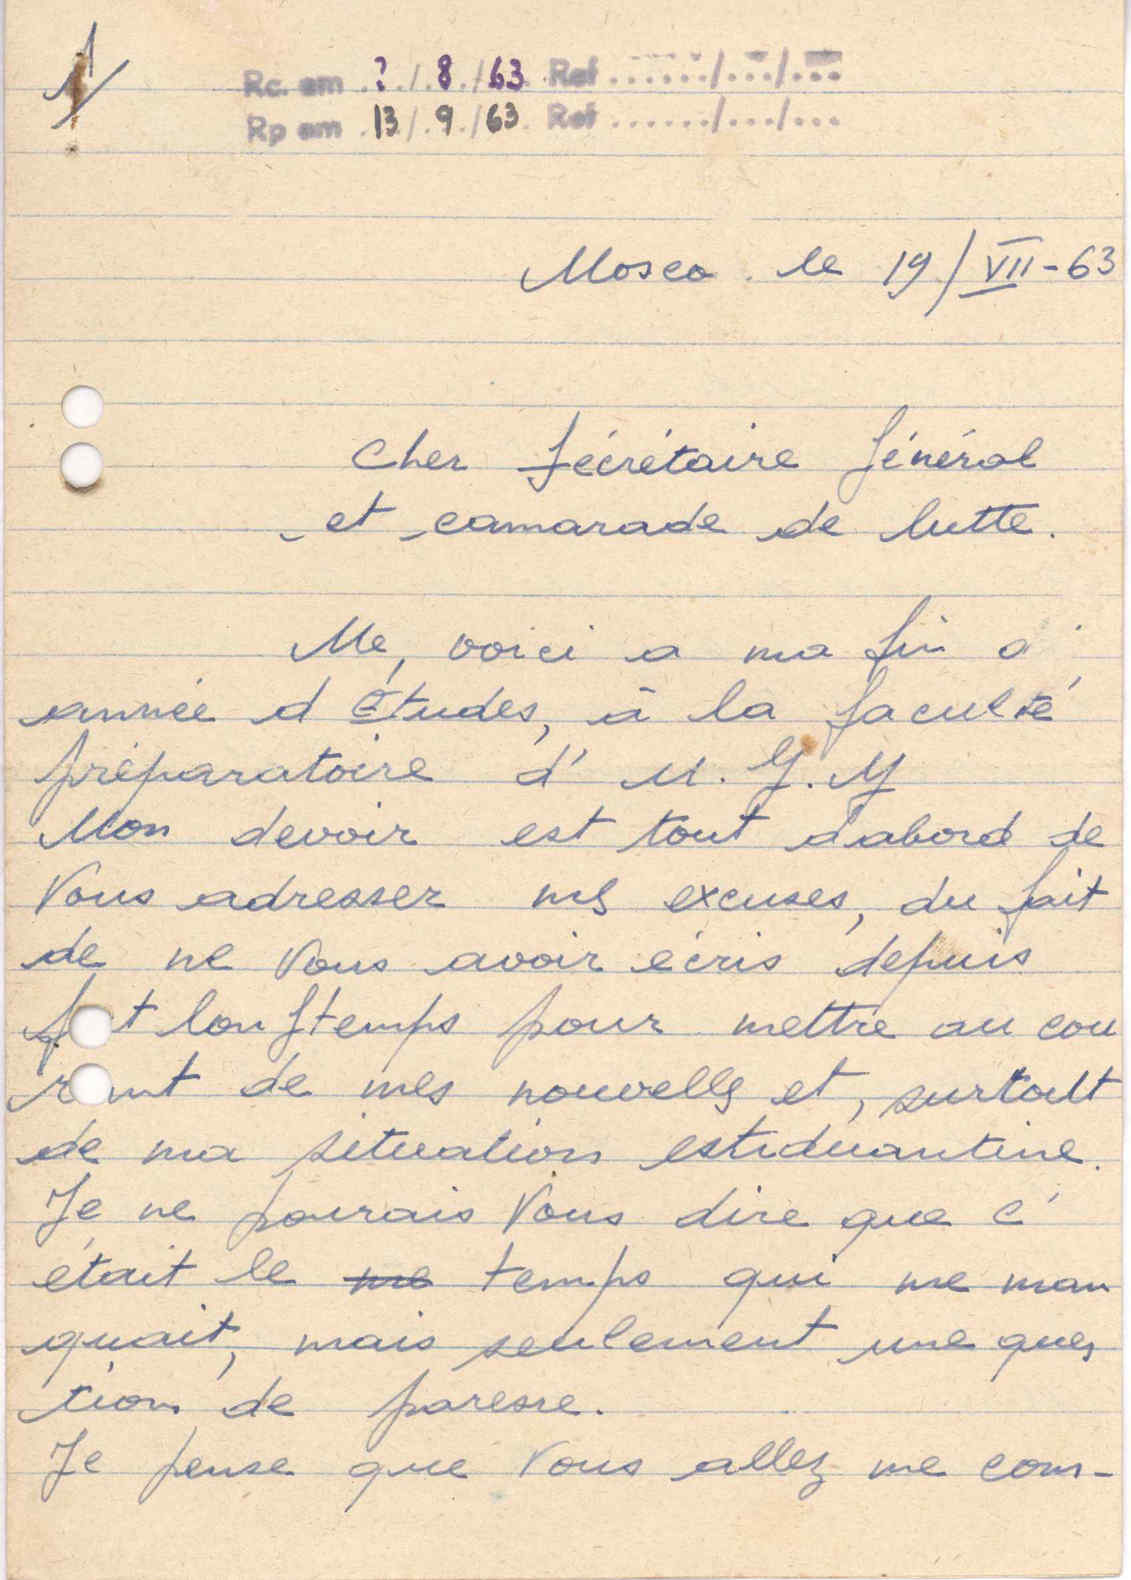 1/
Rc. em ? / 8 / 63 Ref ....../.../...
Rp em 13 / 9 / 63 Ref ....../.../...
Mosco le 19/VII-63
Cher Sécrétaire Général
et camarade de lutte.
Me, voici a ma fin d'
année d'Études, à la faculté
préparatoire d'
Mon devoir est tout d'abord de
Vous adresser mes excuses, du fait
de ne Vous avoir écris depuis
longtemps pour mettre au cou
rant de mes nouvelles et, surtout
de ma situation estiduantine.
Je ne pourais Vous dire que c'
était le me temps qui me man
quait, mais seulement une ques
tion de paresse.
Je pense que Vous allez me com-